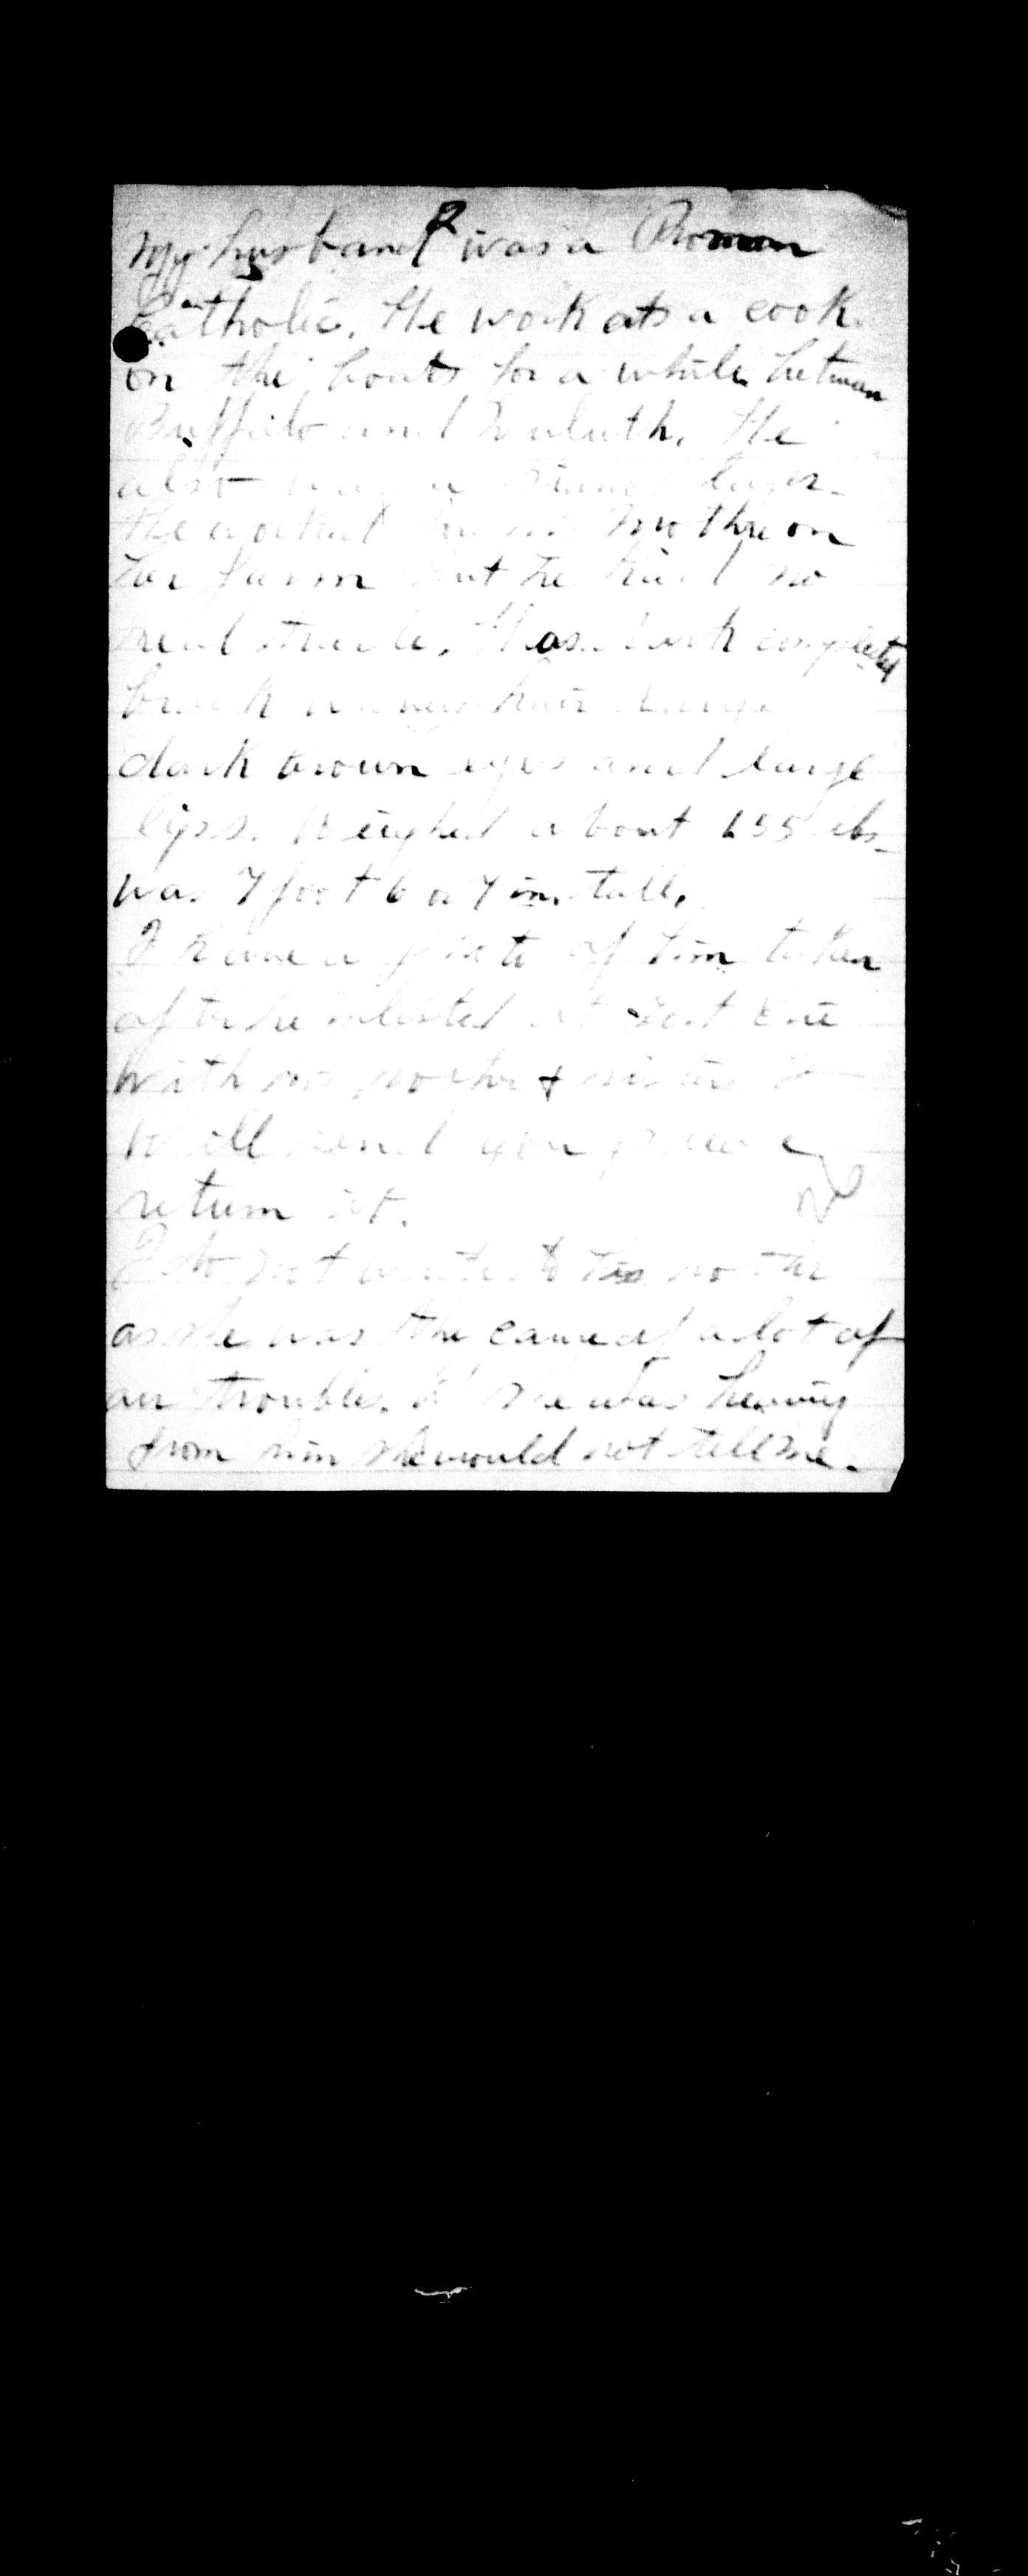 2
My husband was a Roman
Catholic. He work ats a cook
on the boats for a while betwean
Buffalo and Duluth. He
also was a piano player
He worked for his mothre on
her farm but he had no
real trade. Has dark complected
black wavey hair large
dark brown eyes and large
lips. Weighed about 155 lbs
was 7 foot 6 or 7 in. tall.
I have a photo of him taken
after he enlisted at Fort Erie
with his mother & sister I
will send you please
return it.
I do not write to his mother
as she was the cause of a lot of
our troubles. If she was hearing
from him she would not tell me.